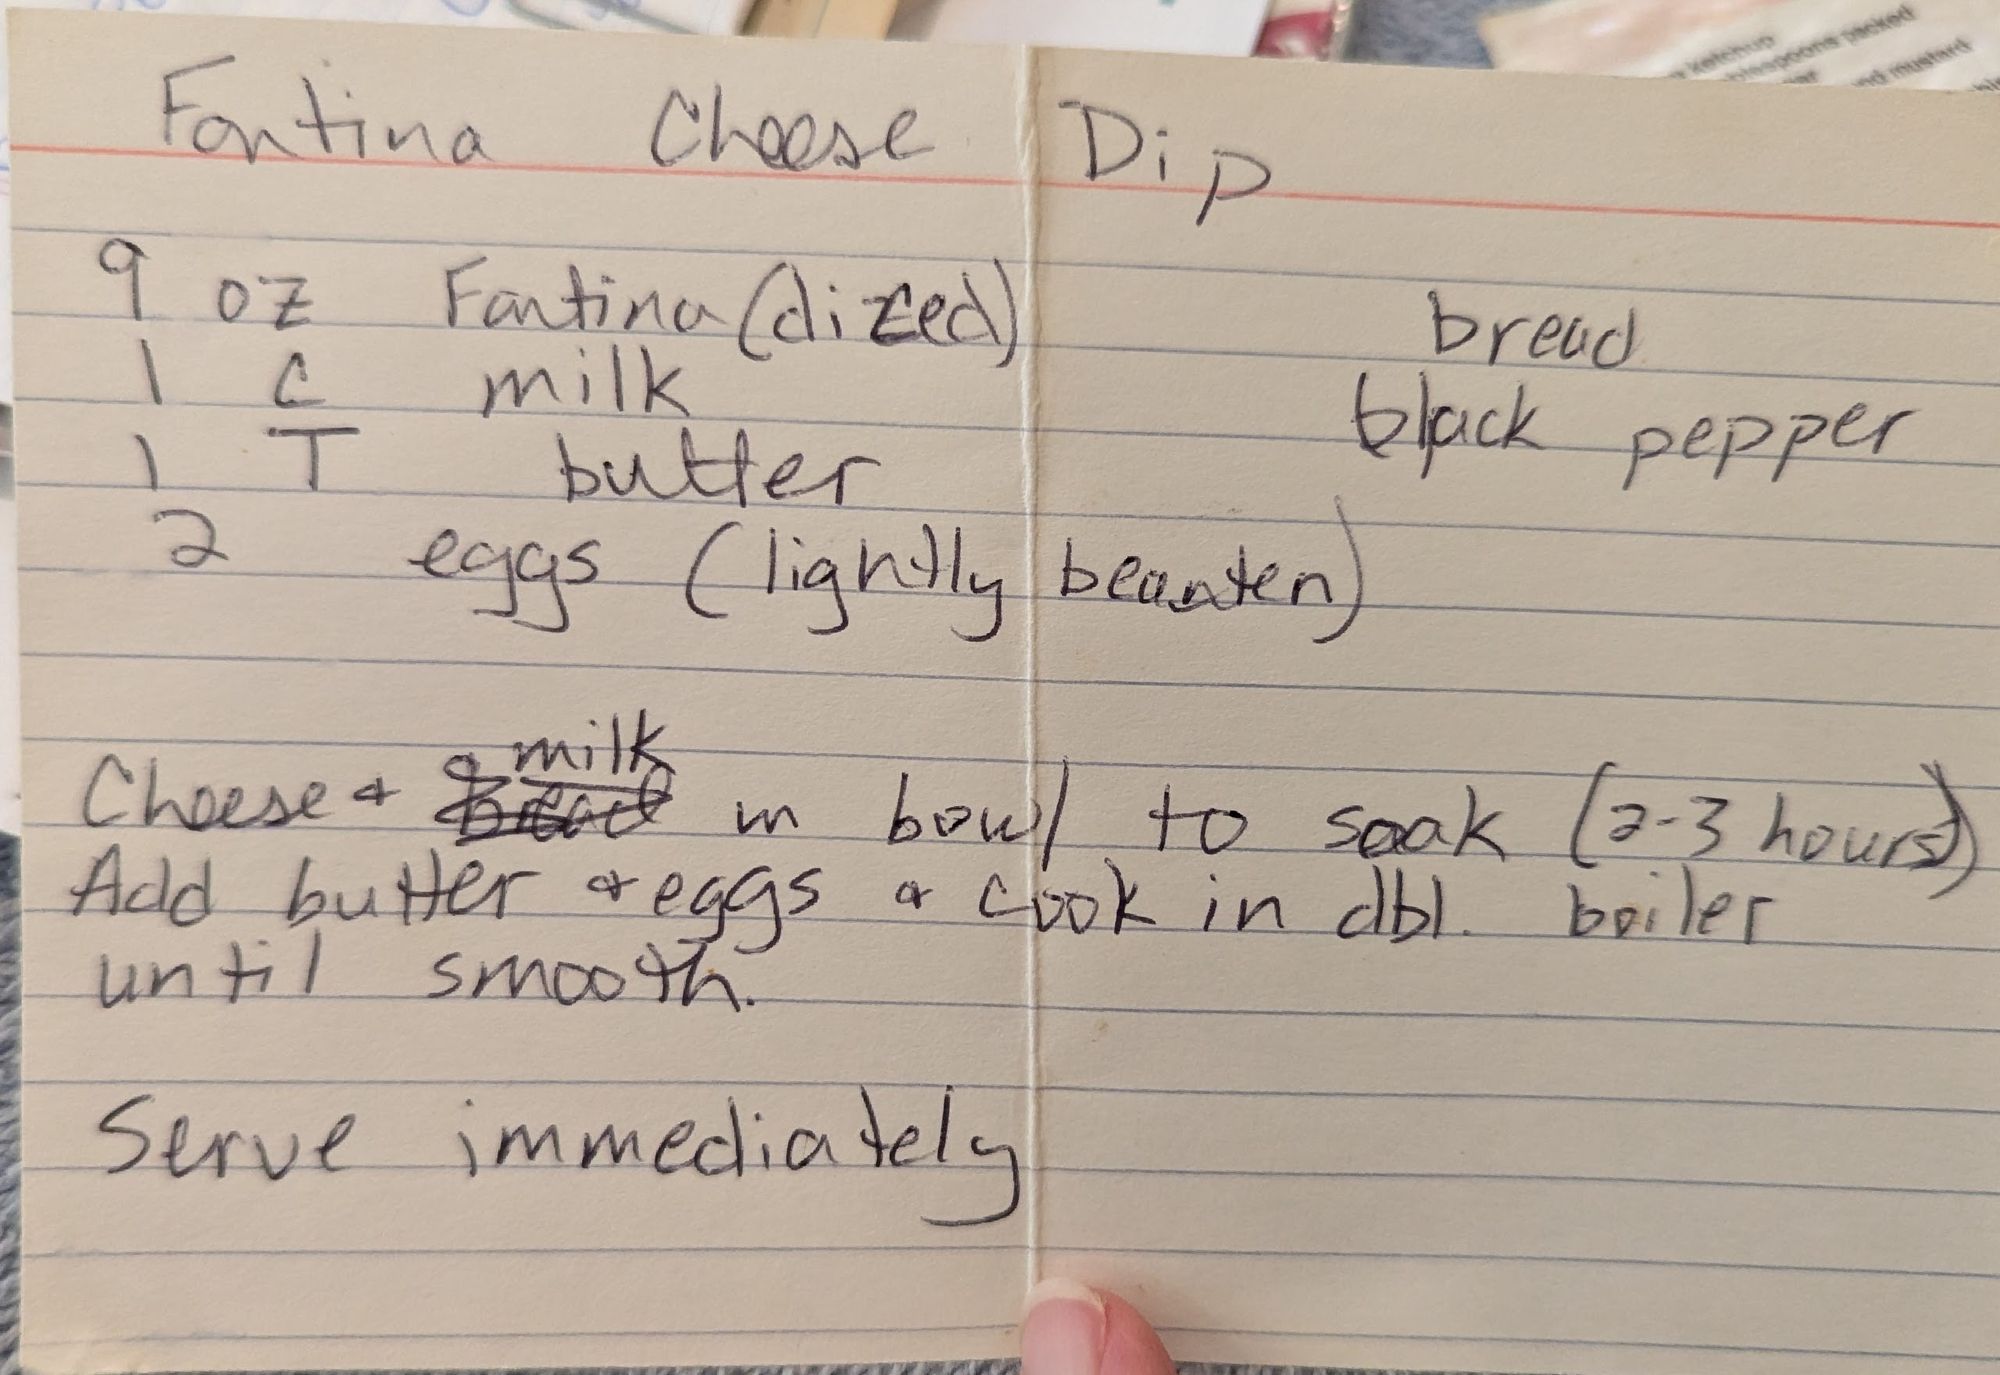 ketchup
packed
nd mustard
Fontina Cheese Dip
9 oz Fontina (dized)
1 C milk
1 T butter
2 eggs (lightly beanten)
bread
black pepper
Cheese & milk in bowl to soak (2-3 hours)
Add butter & eggs & cook in dbl. boiler
until smooth.
Serve immediately